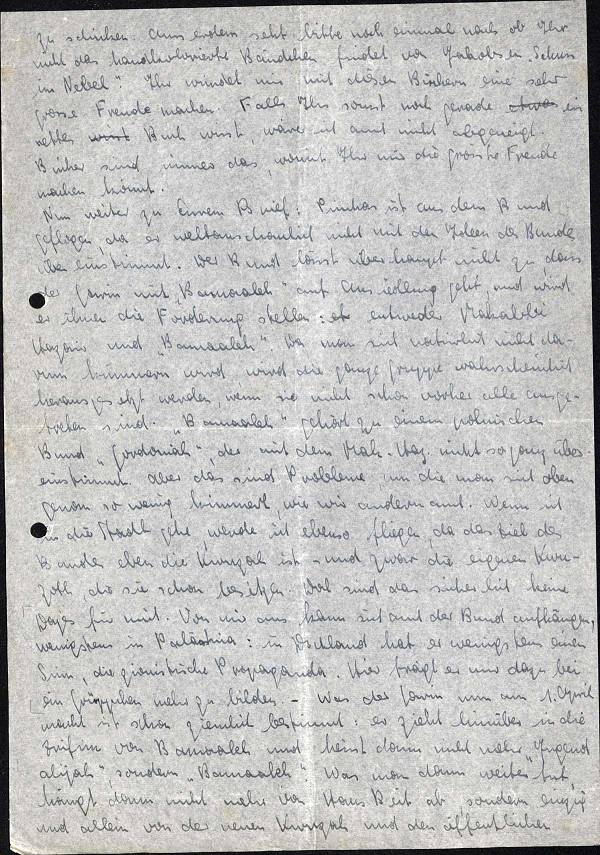 zu schicken. Ausserdem seht bitte noch einmal nach ob Ihr
nicht das Bändchen findet von Jakobsen „Schuss
im Nebel". Ihr würdet mir mit diesen Büchern eine sehr
grosse Freude machen. Falls Ihr sonst noch gerade etwas ein
nettes Buch wisst, wäre ich auch nicht abgeneigt.
Bücher sind immer das, womit Ihr mir die grösste Freude
machen könnt.
Nun weiter zu Eurem Brief: Pinchas ist aus dem Bund
geflogen, da er weltanschaulich nicht mit den Ideen des Bundes
übereinstimmt. Der Bund lässt überhaupt nicht zu, dass
der Garin mit „Bamaaleh" auf Ansiedlung geht, und wird
er ihnen die Forderung stellen: entweder Makabbi
Hazair und „Bamaaleh". Da man sich natürlich nicht da-
rum kümmern wird, wird die ganze Gruppe wahrscheinlich
herausgesetzt werden, wenn sie nicht schon vorher alle ausge-
treten sind. „Bamaaleh" gehört zu einem polnischen
Bund „Gordoniah", der mit dem Mak. Haz. nicht so ganz über-
einstimmt. Aber das sind Probleme um die man sich oben
genau so wenig kümmert, wie wir andern auch. Wenn ich
in die Stadt gehe, werde ich ebenso fliegen, da das Ziel des
Bundes eben die Kwuzah ist – und zwar die eigenen Kwu-
zoth die sie schon besitzen. Doch sind das sicherlich keine
für mich. Von mir aus kann sich auch der Bund aufhängen,
wenigstens in Palästina: in Dschland hat er wenigstens einen
Sinn, die zionistische Propaganda. Hier trägt er nur dazu bei
ein Grüppchen mehr zu bilden. – Was der Garin nun am 1. April
macht ist schon ziemlich bestimmt: er zieht hinüber in die
Zrifim von Bamaaleh und heisst dann nicht mehr „Jugend
alijah", sondern „Bamaaleh". Was man dann weiter tut,
hängt dann nicht mehr von Haus Beit ab, sondern einzig
und allein von der neuen Kwuzah und den öffentlichen